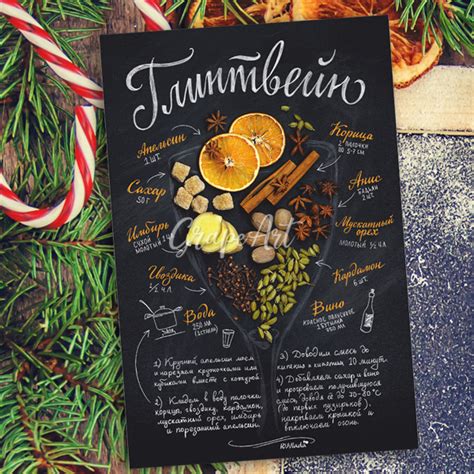 Глинтвейн
Апельсин
1 шт.
Сахар
50 г
Имбирь
сухой
молотый
Гвоздика
1/2 ч.л.
Вода
250 мл
(1 стакан)
Корица
2 палочки
по 5-7 см
Анис
бадьян
2 шт
Мускатный
орех
молотый 1/2 ч.л
Кардамон
6 шт.
Вино
красное полусухое
1 бутылка
GrapeArt
1) Крупный апельсин моем
и нарезаем кружочками или
кубиками вместе с кожурой
2) Кладем в воду палочки
корицы, гвоздику, кардамон,
мускатный орех, имбирь
и порезанный апельсин.
3) Доводим смесь до
кипения и кипятим 10 минут
4) Добавляем сахар и вино
и прогреваем получившуюся
смесь, доведя до 70-80°С
(до первых пузырьков).
накрываем крышкой и
выключаем огонь.